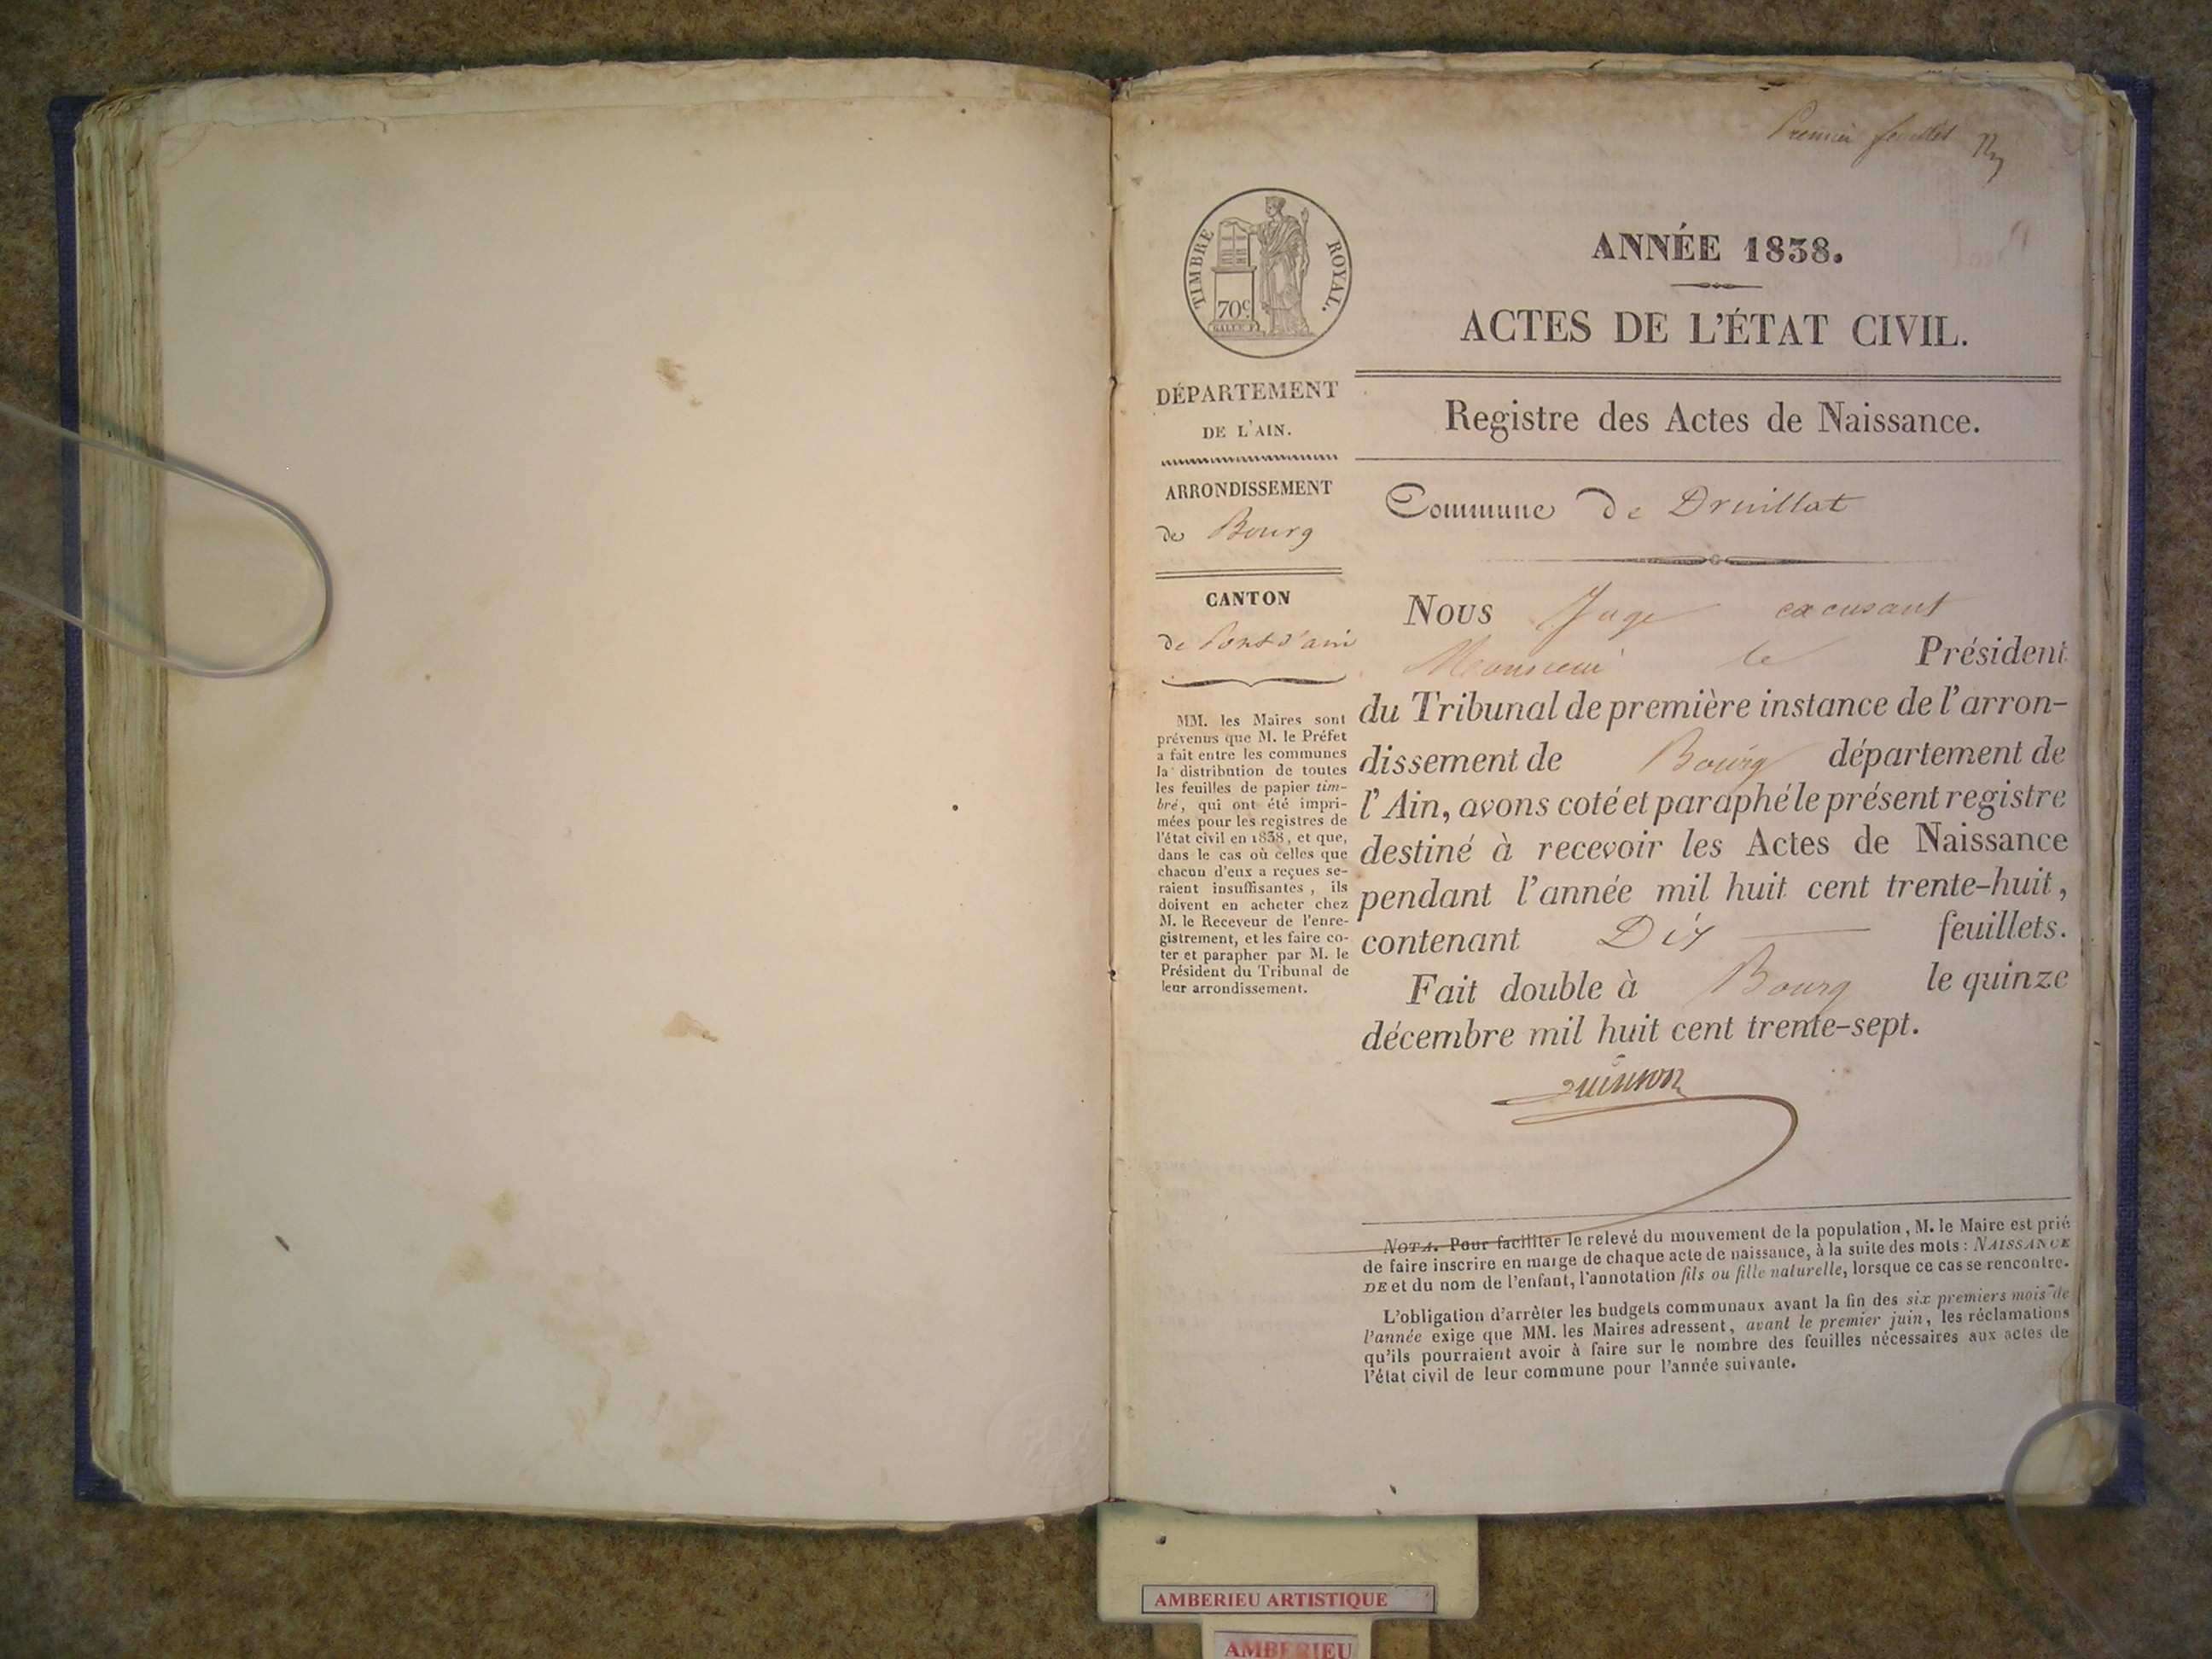 Premier feuillet
TIMBRE ROYAL.
70c
ANNÉE 1838.
ACTES DE L'ÉTAT CIVIL.
Registre des Actes de Naissance.
Commune de Druillat
DÉPARTEMENT
DE L'AIN.
ARRONDISSEMENT
de Bourg
CANTON
de Pont d'ain
MM. les Maires sont
prévenus que M. le Préfet
a fait entre les communes
la distribution de toutes
les feuilles de papier tim-
bré, qui ont été impri-
mées pour les registres de
l'état civil en 1838, et que,
dans le cas où celles que
chacun d'eux a reçues se-
raient insuffisantes, ils
doivent en acheter chez
M. le Receveur de l'enre-
gistrement, et les faire co-
ter et parapher par M. le
Président du Tribunal de
leur arrondissement.
Nous Juge excusant
Monsieur le Président
du Tribunal de première instance de l'arron-
dissement de Bourg département de
l'Ain, avons coté et paraphé le présent registre
destiné à recevoir les Actes de Naissance
pendant l'année mil huit cent trente-huit,
contenant Dix feuillets.
Fait double à Bourg le quinze
décembre mil huit cent trente-sept.
Quinson
NOTA. Pour faciliter le relevé du mouvement de la population, M. le Maire est prié
de faire inscrire en marge de chaque acte de naissance, à la suite des mots : NAISSANCE
DE et du nom de l'enfant, l'annotation fils ou fille naturelle, lorsque ce cas se rencontre.
L'obligation d'arrêter les budgets communaux avant la fin des six premiers mois de
l'année exige que MM. les Maires adressent, avant le premier juin, les réclamations
qu'ils pourraient avoir à faire sur le nombre des feuilles nécessaires aux actes de
l'état civil de leur commune pour l'année suivante.
AMBERIEU ARTISTIQUE
AMBERIEU